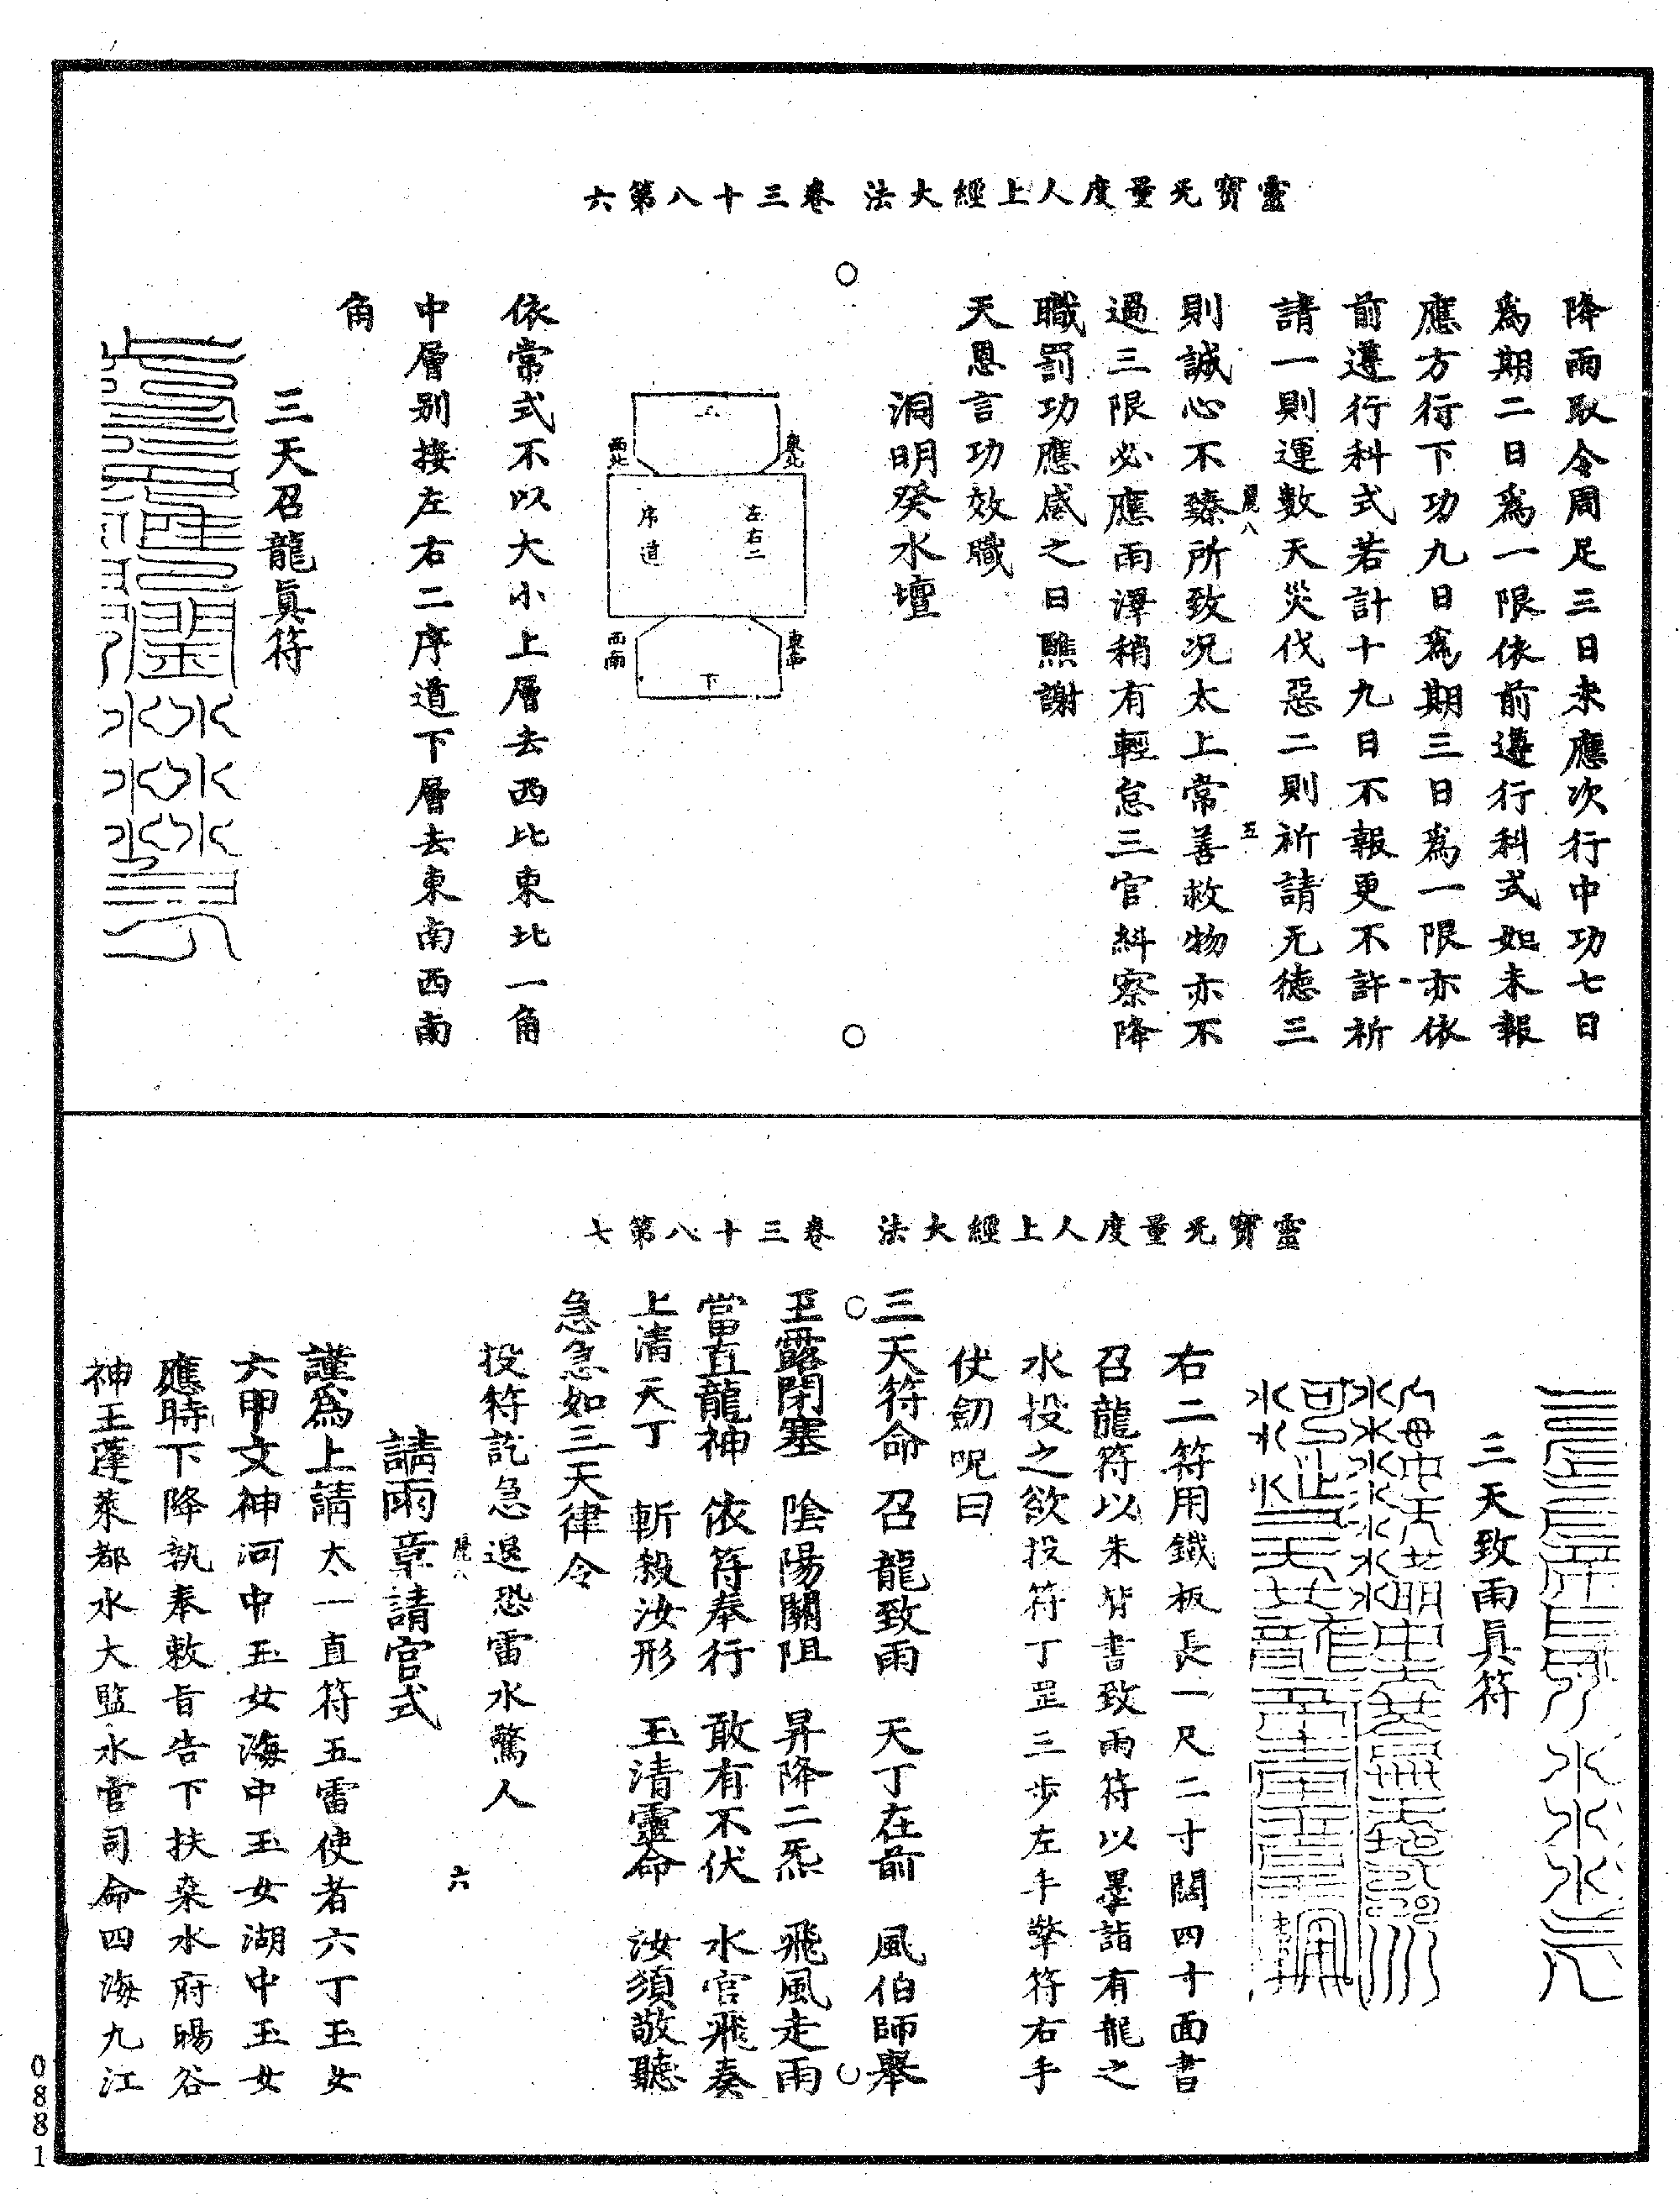 靈寶旡量度人上經大法　卷三十八第六
降雨取令周足三日未應次行中功七日
爲期二日爲一限依前遵行科式如未報
應方行下功九日爲期三日爲一限亦依
前遵行科式若計十九日不報更不許祈
請一則運數天災伐惡二則祈請无德三
則誠心不臻所致况太上常善救物亦不
過三限必應雨澤稍有輕怠三官糾察降
職罰功應感之日醮謝
天恩言功效職
洞明癸水壇
上
東北
西北
左右二
序道
東南
西南
下
依常式不以大小上層去西北東北一角
中層別接左右二序道下層去東南西南
角
三天召龍眞符
靈寶旡量度人上經大法　卷三十八第七
三天致雨眞符
右二符用鐵板長一尺二寸闊四寸面書
召龍符以朱背書致雨符以墨詣有龍之
水投之欲投符丁罡三步左手擎符右手
仗劒呪曰
三天符命　召龍致雨　天丁在前　風伯師舉
玉露閉塞　陰陽關阻　昇降二炁　飛風走雨
當直龍神　依符奉行　敢有不伏　水官飛奏
上清天丁　斬殺汝形　玉清靈命　汝須敬聽
急急如三天律令
投符訖急退恐雷水驚人
請雨章請官式
謹爲上請太一直符五雷使者六丁玉女
六甲文神河中玉女海中玉女湖中玉女
應時下降執奉敕旨告下扶桑水府暘谷
神王蓬萊都水大監水官司命四海九江
0881